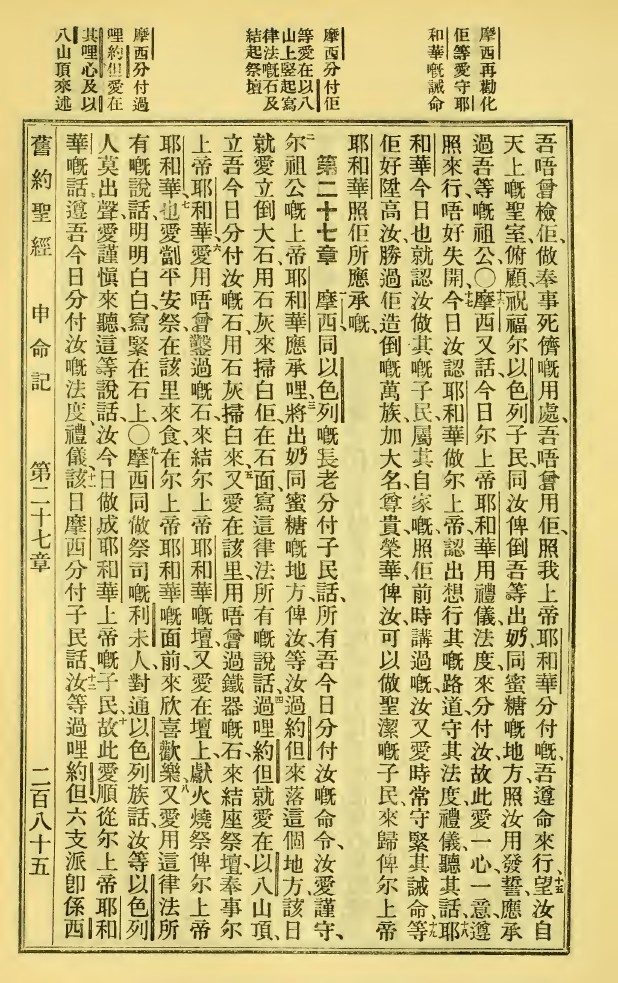 摩西再勸化
佢等愛守耶
和華嘅誡命
摩西分付佢
等愛在以八
山上竪起寫
律法嘅石及
結起祭壇
摩西分付過
哩約但愛在
其哩心及以
八山頂來述
吾唔曾檢佢、做奉事死儕嘅用處、吾唔曾用佢、照我上帝耶和華分付嘅、吾遵命來行、十五望汝自
天上嘅聖室、俯顧、祝福尔以色列子民、同汝俾倒吾等出奶同蜜糖嘅地方、照汝用發誓、應承
過吾等嘅祖公、〇十六摩西又話、今日尔上帝耶和華用禮儀法度來分付汝、故此愛一心一意遵
照來行、唔好失開、十七今日汝認耶和華做尔上帝、認出想行其嘅路道、守其法度禮儀、聽其話、十八耶
和華今日也就認汝做其嘅子民、屬其自家嘅、照佢前時講過嘅、汝又愛時常守緊其誡命、十九等
佢好陞高汝、勝過佢造倒嘅萬族、加大名尊貴榮華俾汝、可以做聖潔嘅子民、來歸俾尔上帝
耶和華、照佢所應承嘅、
第二十七章　一摩西同以色列嘅長老分付子民話、所有吾今日分付汝嘅命令、汝愛謹守、
二尔祖公嘅上帝耶和華應承哩、三將出奶同蜜糖嘅地方俾汝、等汝過約但來落這個地方、該日
就愛立倒大石、用石灰來掃白佢、在石面寫這律法所有嘅說話、四過哩約但就愛在以八山頂、
立吾今日分付汝嘅石、用石灰掃白來、五又愛在該里用唔曾過鐵器嘅石來結座祭壇、奉事尔
上帝耶和華、六愛用唔曾鑿過嘅石來結尔上帝耶和華嘅壇、又愛在壇上、獻火燒祭俾尔上帝
耶和華、七也愛劏平安祭、在該里來食、在尔上帝耶和華嘅面前來欣喜歡樂、八又愛用這律法所
有嘅說話、明明白白、寫緊在石上、〇九摩西同做祭司嘅利未人對通以色列族話、汝等以色列
人莫出聲、愛謹慎來聽這等說話、汝今日做成耶和華上帝嘅子民、十故此愛順從尔上帝耶和
華嘅話、遵吾今日分付汝嘅法度、禮儀、十一該日摩西分付子民話、十二汝等過哩約但、六支派卽係西
舊約聖經　申命記　第二十七章　二百八十五